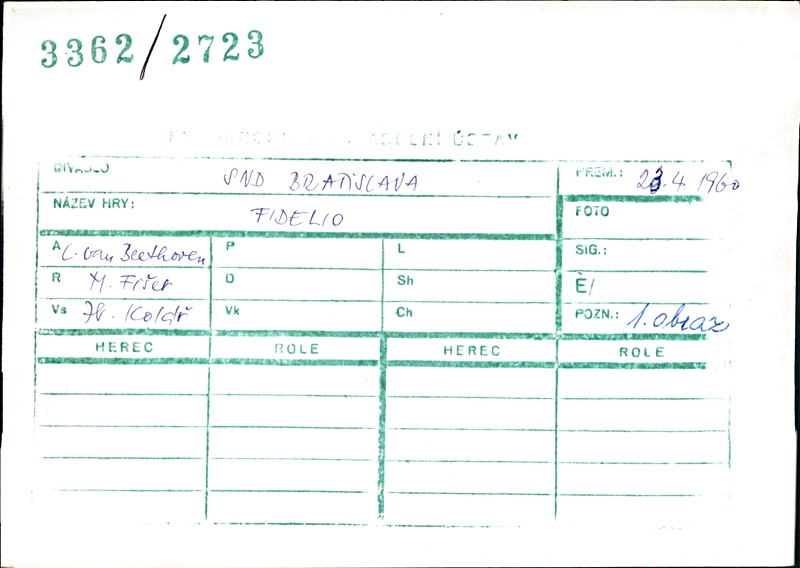 3362/2723
DIVADLO SND BRATISLAVA PREM.: 23.4 1960
NÁZEV HRY: FIDELIO FOTO
A L. van Beethoven P L SIG.:
R M. Fišer D Sh Č/
Vs Zb. Kolář Vk Ch POZN.: 1. obraz
HEREC ROLE HEREC ROLE